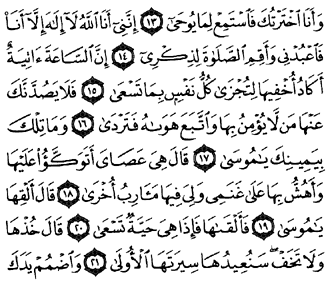 وَأَنَا ٱخْتَرْتُكَ فَٱسْتَمِعْ لِمَا يُوحَىٰٓ ١٣ إِنَّنِىٓ أَنَا ٱللَّهُ لَآ إِلَٰهَ إِلَّآ أَنَا۠
فَٱعْبُدْنِى وَأَقِمِ ٱلصَّلَوٰةَ لِذِكْرِىٓ ١٤ إِنَّ ٱلسَّاعَةَ ءَاتِيَةٌ
أَكَادُ أُخْفِيهَا لِتُجْزَىٰ كُلُّ نَفْسٍۭ بِمَا تَسْعَىٰ ١٥ فَلَا يَصُدَّنَّكَ
عَنْهَا مَن لَّا يُؤْمِنُ بِهَا وَٱتَّبَعَ هَوَىٰهُ فَتَرْدَىٰ ١٦ وَمَا تِلْكَ
بِيَمِينِكَ يَٰمُوسَىٰ ١٧ قَالَ هِىَ عَصَاىَ أَتَوَكَّؤُا۟ عَلَيْهَا
وَأَهُشُّ بِهَا عَلَىٰ غَنَمِى وَلِىَ فِيهَا مَـَٔارِبُ أُخْرَىٰ ١٨ قَالَ أَلْقِهَا
يَٰمُوسَىٰ ١٩ فَأَلْقَىٰهَا فَإِذَا هِىَ حَيَّةٌ تَسْعَىٰ ٢٠ قَالَ خُذْهَا
وَلَا تَخَفْ ۖ سَنُعِيدُهَا سِيرَتَهَا ٱلْأُولَىٰ ٢١ وَٱضْمُمْ يَدَكَ